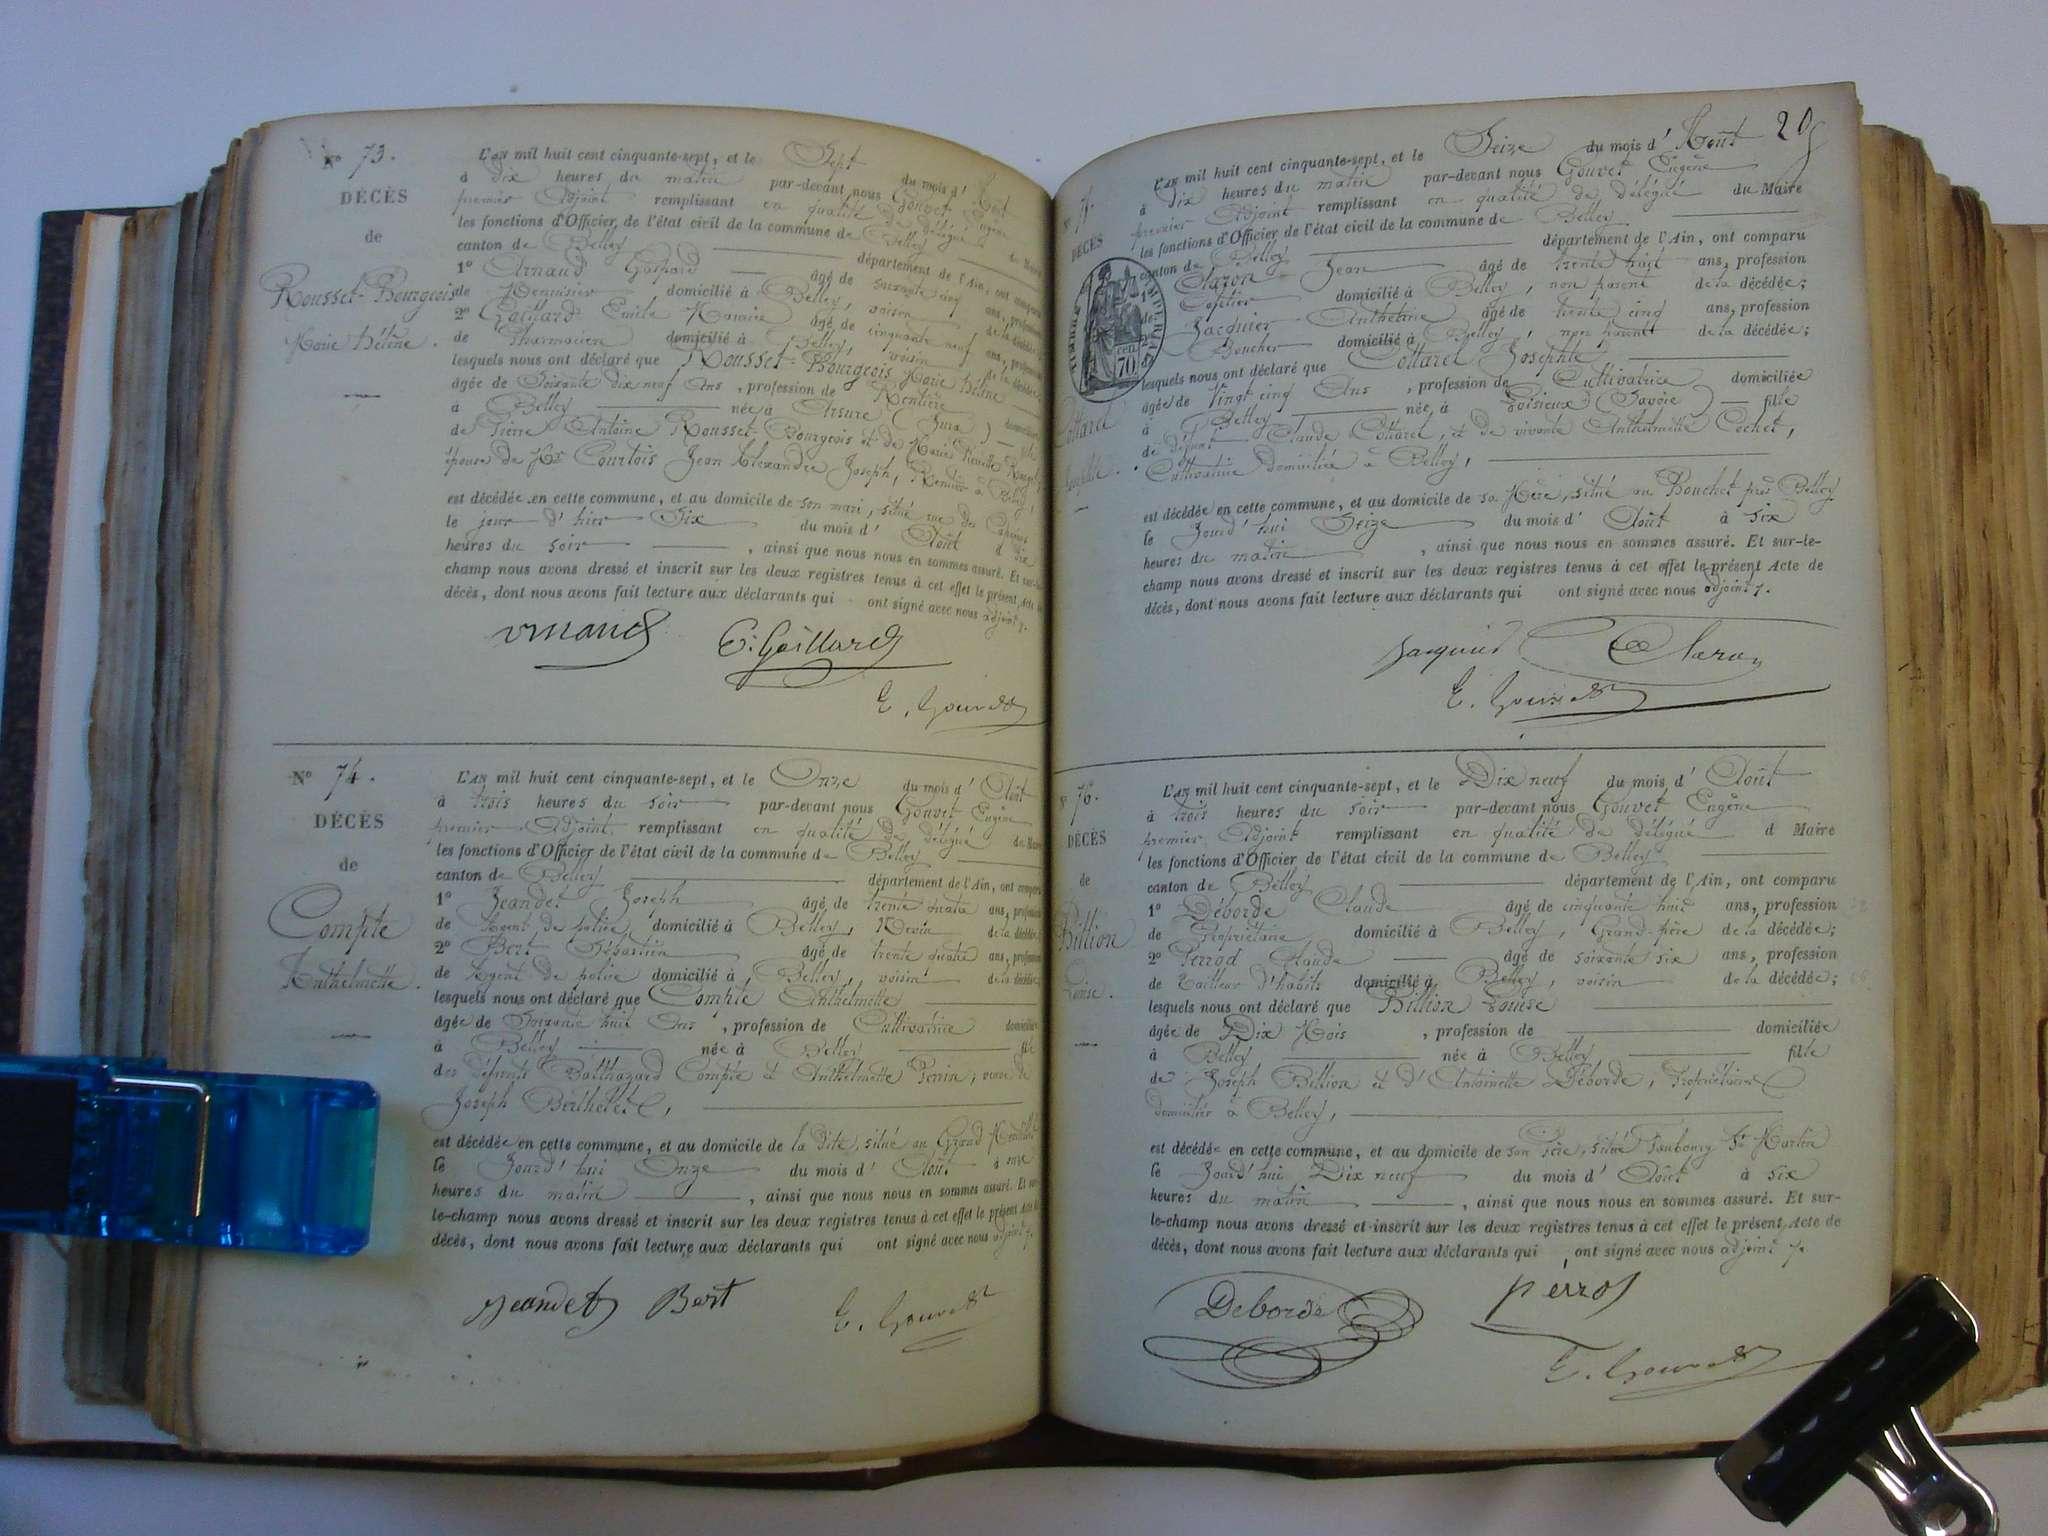 Nº 73.
DÉCÈS
de
Rousset-Bourgeois
Marie Hélène.
L'AN mil huit cent cinquante-sept, et le Sept du mois d' Août
à dix heures du matin par-devant nous Gouvet Eugène
premier Adjoint remplissant en qualité de délégué du Maire
les fonctions d'Officier de l'état civil de la commune de Belley
canton de Belley département de l'Ain, ont comparu
1º Arnaud Gaspard âgé de soixante cinq ans, profession
de Menuisier domicilié à Belley, voisin de la décédée;
2º Gaillard Emile Maurice âgé de cinquante neuf ans, profession
de Pharmacien domicilié à Belley, voisin de la décédée;
lesquels nous ont déclaré que Rousset-Bourgeois Marie Hélène
âgée de Soixante dix neuf Ans, profession de Rentière domiciliée
à Belley née à Arsure (Jura) fille
de Pierre Antoine Rousset-Bourgeois et de Marie
épouse de Mr Courtois Jean Alexandre Joseph, Rentier à Belley
est décédée en cette commune, et au domicile de son mari, situé rue des
le jour d'hier Six du mois d' Août à six
heures du soir, ainsi que nous nous en sommes assuré. Et sur-le-
champ nous avons dressé et inscrit sur les deux registres tenus à cet effet le présent Acte de
décès, dont nous avons fait lecture aux déclarants qui ont signé avec nous adjoint
E. Gaillard
E. Gouvet
Nº 74.
DÉCÈS
de
Compte
Anthelmette.
L'AN mil huit cent cinquante-sept, et le Onze du mois d' Août
à trois heures du soir par-devant nous Gouvet Eugène
premier Adjoint remplissant en qualité de délégué du Maire
les fonctions d'Officier de l'état civil de la commune de Belley
canton de Belley département de l'Ain, ont comparu
1º Jeandet Joseph âgé de trente quatre ans, profession
de Agent de police, domicilié à Belley, voisin de la décédée;
2º Bert Sébastien âgé de trente quatre ans, profession
de Agent de police domicilié à Belley, voisin de la décédée;
lesquels nous ont déclaré que Compte Anthelmette
âgée de Soixante huit Ans, profession de Cultivatrice domiciliée
à Belley née à Belley fille
des défunts Balthazard Compte et Anthelmette Perrin, veuve de
Joseph Berthelet,
est décédée en cette commune, et au domicile de la dite, situé au Grand
le Jourd'hui Onze du mois d' Août à onze
heures du matin, ainsi que nous nous en sommes assuré. Et sur-
le-champ nous avons dressé et inscrit sur les deux registres tenus à cet effet le présent Acte de
décès, dont nous avons fait lecture aux déclarants qui ont signé avec nous adjoint
Jeandet Bert
E. Gouvet
20
Nº 75.
DÉCÈS
TIMBRE IMPERIAL
70 cen
Cottarel
Josephte.
L'AN mil huit cent cinquante-sept, et le Seize du mois d' Août
à dix heures du matin par-devant nous Gouvet Eugène
premier Adjoint remplissant en qualité de délégué du Maire
les fonctions d'Officier de l'état civil de la commune de Belley
canton de Belley département de l'Ain, ont comparu
1º Claron Jean âgé de trente huit ans, profession
de Cafetier domicilié à Belley, non parent de la décédée;
2º Jacquier Anthelme âgé de trente cinq ans, profession
de Boucher domicilié à Belley, non parent de la décédée;
lesquels nous ont déclaré que Cottarel Josephte
âgée de vingt cinq Ans, profession de Cultivatrice domiciliée
à Belley née à Loisieux (Savoie) fille
de défunt Claude Cottarel, et de vivante Anthelmette Cochet,
Cultivatrice domiciliée à Belley,
est décédée en cette commune, et au domicile de sa Mère, situé au Bouchet près Belley
le Jourd'hui Seize du mois d' Août à six
heures du matin, ainsi que nous nous en sommes assuré. Et sur-le-
champ nous avons dressé et inscrit sur les deux registres tenus à cet effet le présent Acte de
décès, dont nous avons fait lecture aux déclarants qui ont signé avec nous adjoint
Claron
E. Gouvet
Nº 76.
DÉCÈS
de
Billion
Louise.
L'AN mil huit cent cinquante-sept, et le Dix neuf du mois d' Août
à trois heures du soir par-devant nous Gouvet Eugène
premier Adjoint remplissant en qualité de délégué d Maire
les fonctions d'Officier de l'état civil de la commune de Belley
canton de Belley département de l'Ain, ont comparu
1º Déborde Claude âgé de cinquante huit ans, profession
de Propriétaire domicilié à Belley, Grand-père de la décédée;
2º Perrod Claude âgé de soixante six ans, profession
de Tailleur d'habits domicilié à Belley, voisin de la décédée;
lesquels nous ont déclaré que Billion Louise
âgée de Dix Mois, profession de domiciliée
à Belley née à Belley fille
de Joseph Billion et d'Antoinette Déborde, Propriétaires
domiciliés à Belley,
est décédée en cette commune, et au domicile de son Père, situé Faubourg St Martin
le Jourd'hui Dix neuf du mois d' Août à six
heures du matin, ainsi que nous nous en sommes assuré. Et sur-
le-champ nous avons dressé et inscrit sur les deux registres tenus à cet effet le présent Acte de
décès, dont nous avons fait lecture aux déclarants qui ont signé avec nous adjoint
Deborde
E. Gouvet